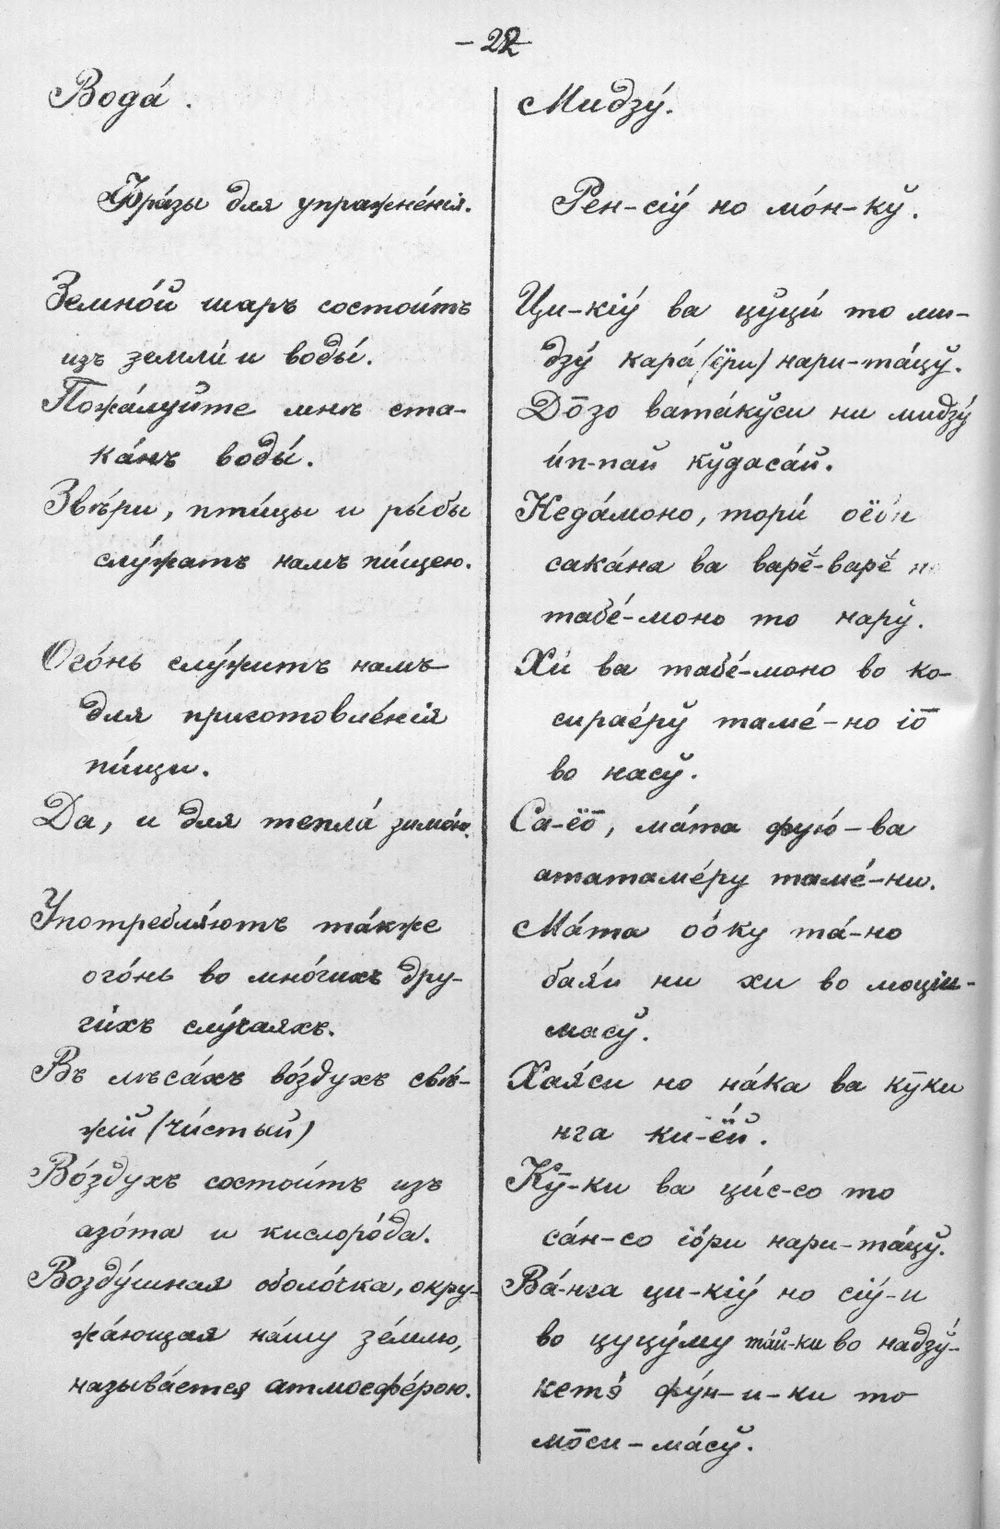 – 22 –
Вода́.
Фра́зы для упражне́нія.
Земно́й шаръ состои́тъ
изъ земли́ и воды́.
Пожа́луйте мнѣ ста-
ка́нъ воды́.
Звѣ́ри, пти́цы и ры́бы
слу́жатъ намъ пи́щею.
Ого́нь слу́житъ намъ
для приготовле́нія
пи́щи.
Да, и для тепла́ зимо́ю.
Употребля́ютъ та́кже
ого́нь во мно́гихъ дру-
ги́хъ слу́чаяхъ.
Въ лѣса́хъ во́здухъ свѣ́-
жій (чи́стый)
Во́здухъ состои́тъ изъ
азо́та и кислоро́да.
Возду́шная оболо́чка, окру-
жа́ющая на́шу зе́млю,
называ́ется атмосфе́рою.
Мидзу́.
Рен-сіу́ но мо́н-кў.
Ци-кіу́ ва цўци́ то ми-
дзу́ кара́ (іӧри) нари-та́цў.
До̄зо вата́кўси ни мидзу́
и́п-пай кўдаса́й.
Кеда́моно, тори́
сака́на ва варӗ-варӗ
табе́-моно то нарў.
Хи́ ва табе́-моно во ко-
сирае́рў таме́-но іо̄
во насў.
Са-ёо̄, ма́та фую́-ва
ататаме́ру таме́-ни.
Ма́та оо́ку та́-но
бая́и ни хи во моции-
масў.
Хая́си но на́ка ва кӯки
нга ки-ёй.
Кӯ-ки ва ци́с-со то
са́н-со іо́ри нари-та́цў.
Ва́-нга ци-кіу́ но сіу́-и
во цуцу́му та́й-ки во надзу́-
кетэ́ фу́н-и-ки то
мо̄си-ма́сў.